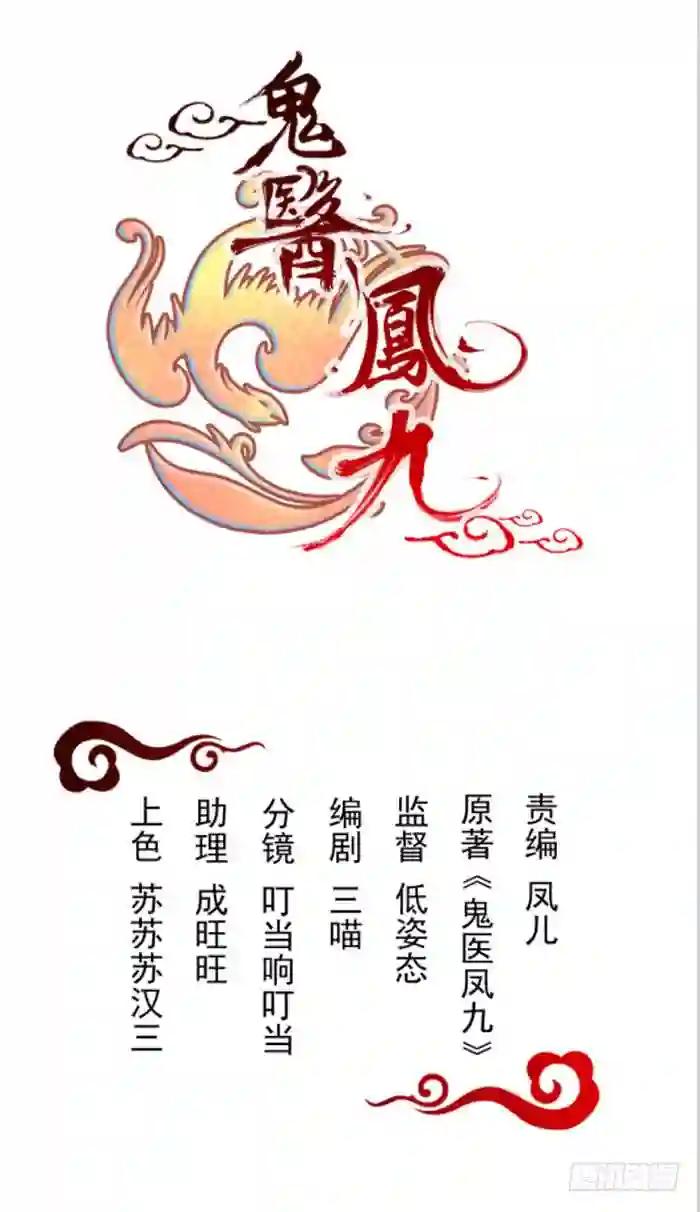 鬼醫鳳九
责编 凤儿
原著《鬼医凤九》
监督 低姿态
编剧 三喵
分镜 叮当响叮当
助理 成旺旺
上色 苏苏苏汉三